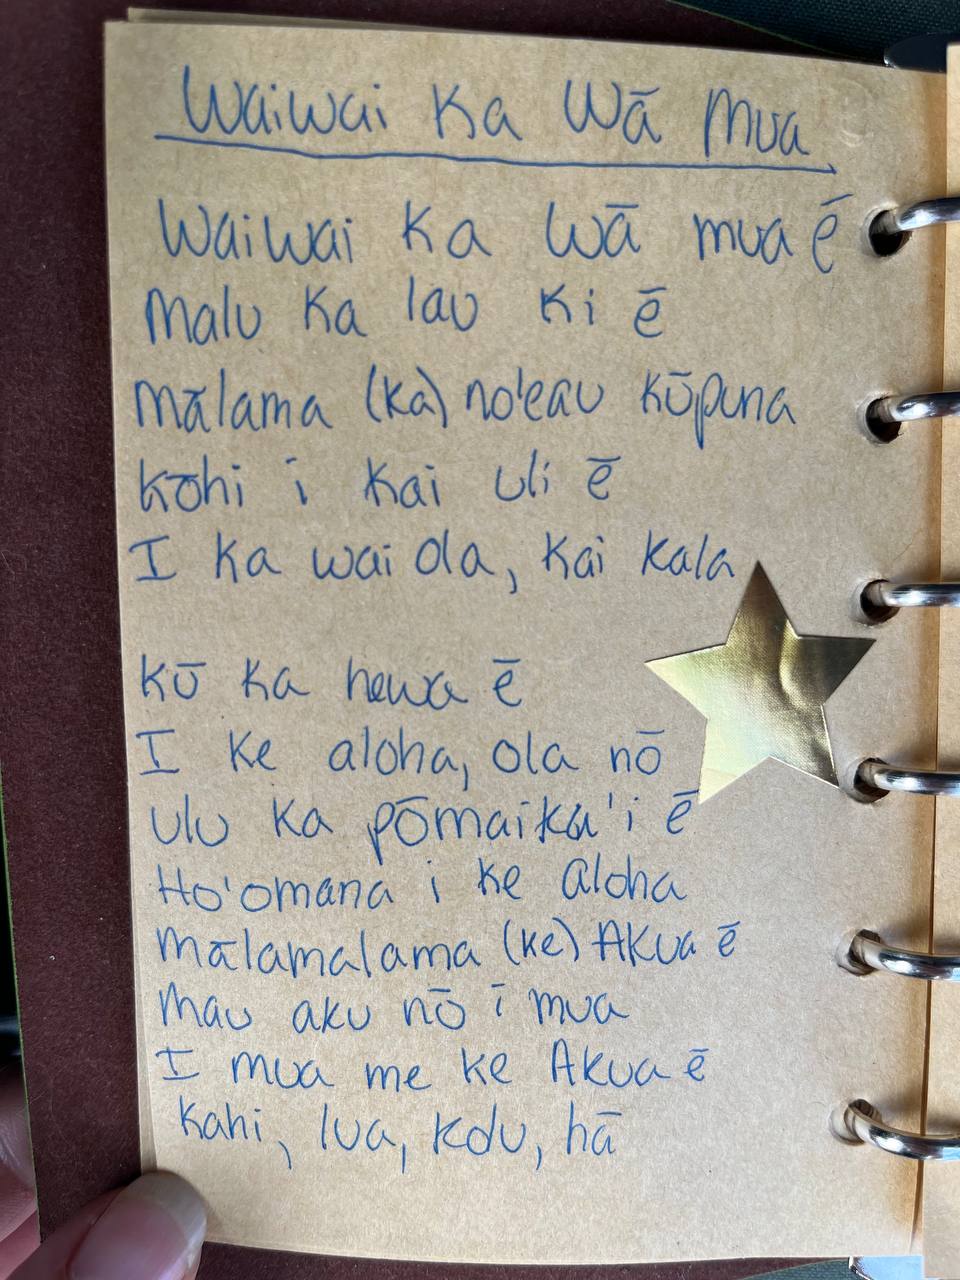 Waiwai Ka Wā Mua
Waiwai Ka Wā mua ē
Malu Ka lau Ki ē
Mālama (Ka) no'eau Kūpuna
Kōhi i Kai uli ē
I Ka wai ola, Kai Kala
Kū Ka hewa ē
I Ke aloha, ola nō
Ulu Ka pōmaika'i ē
Ho'omana i Ke Aloha
Mālamalama (Ke) Akua ē
Mau aku nō ī mua
I mua me Ke Akua ē
Kahi, lua, Kolu, hā